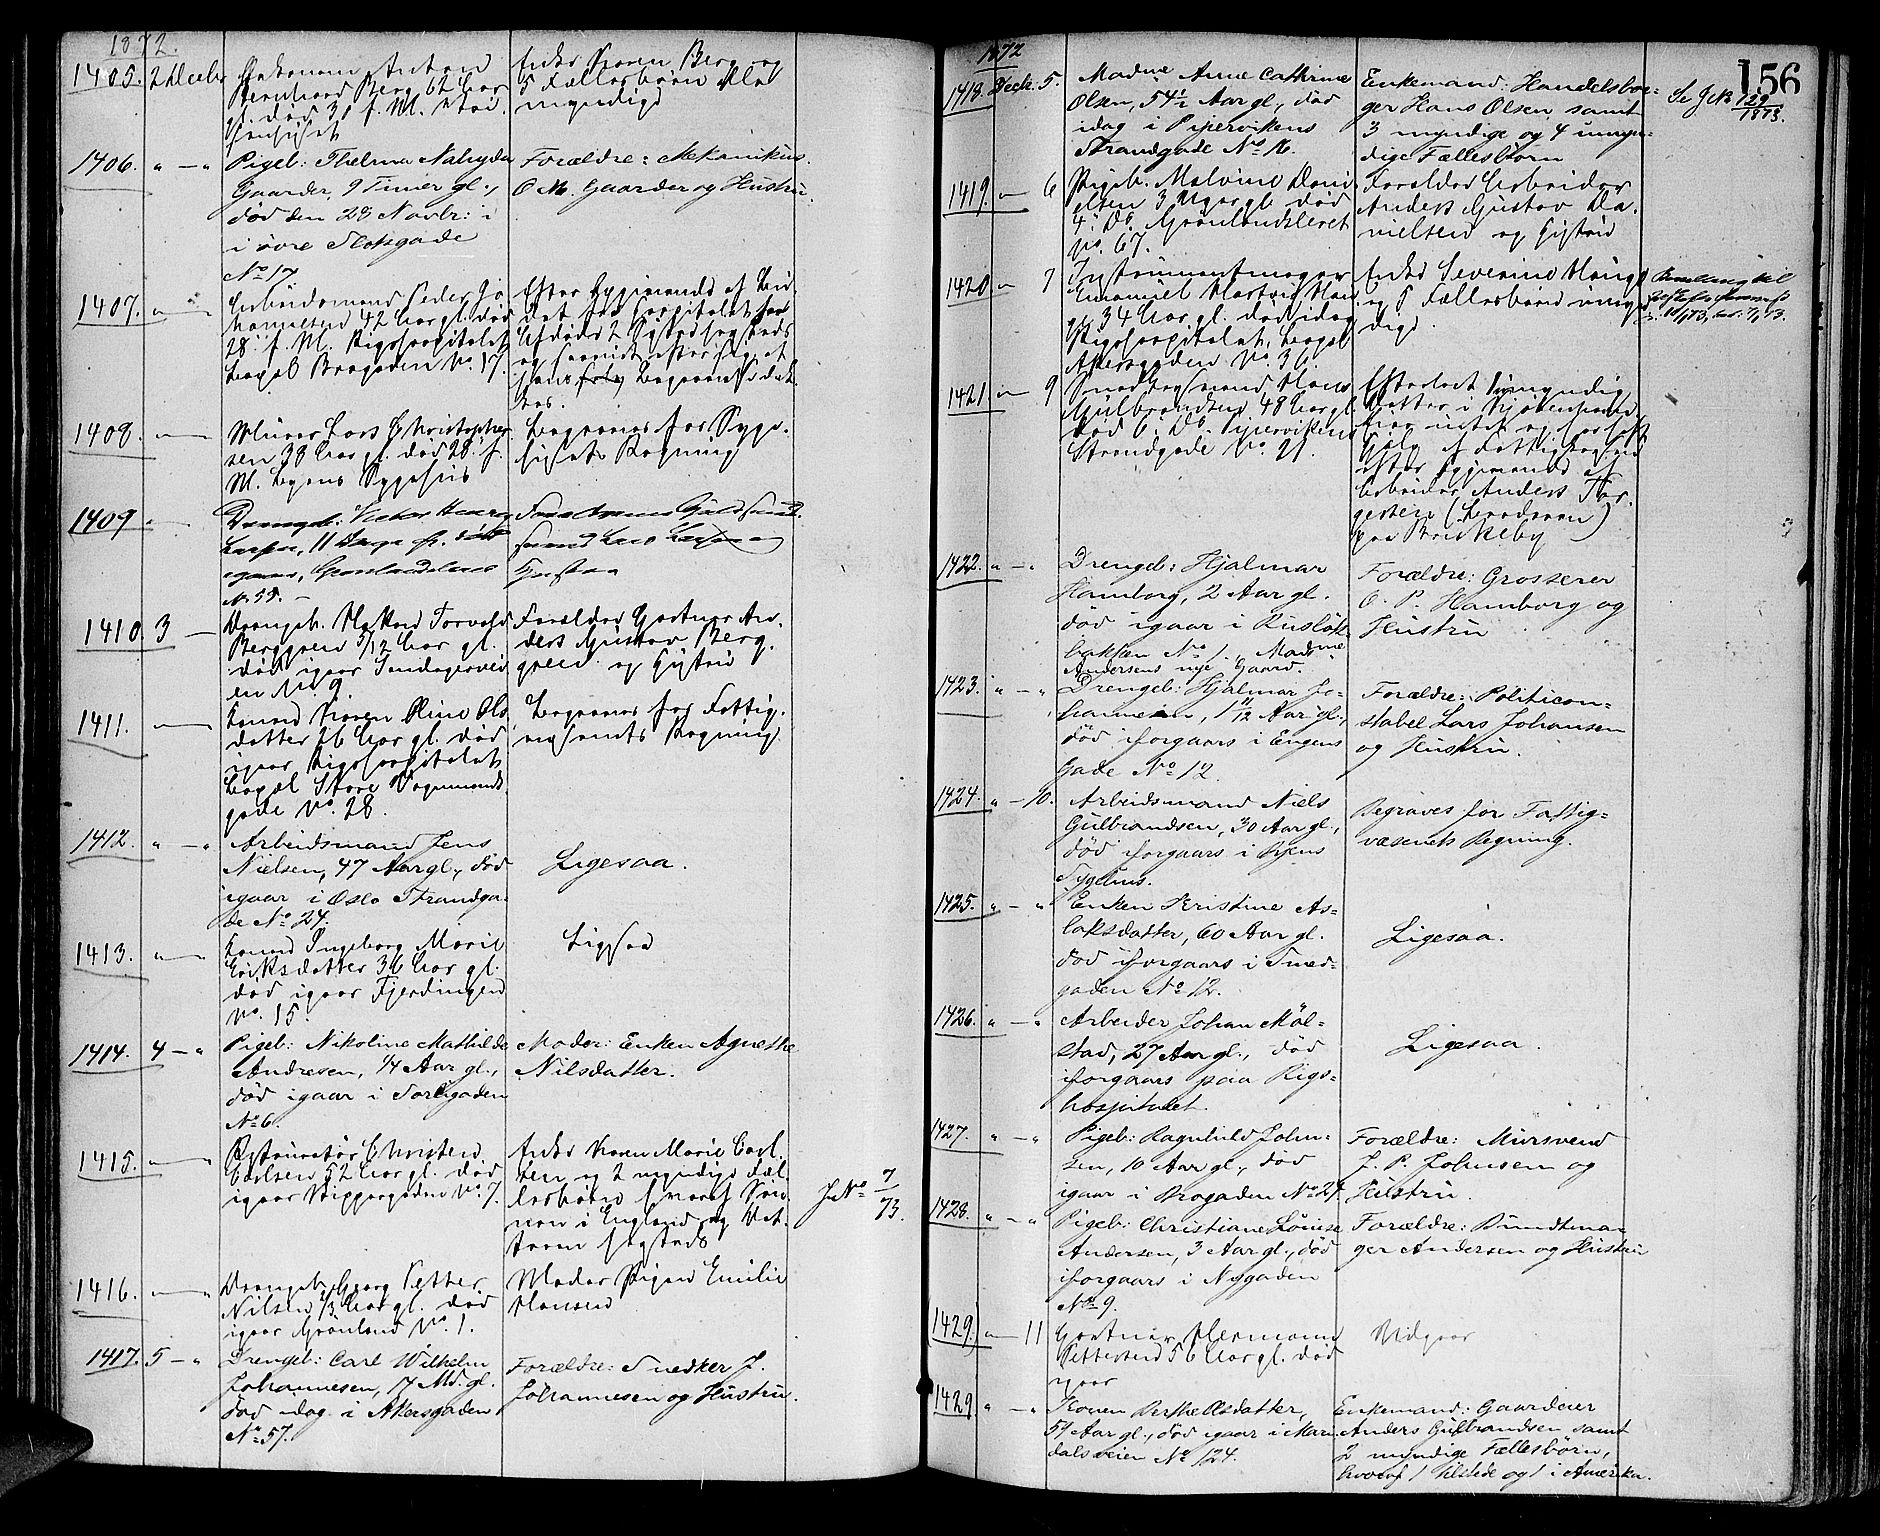 1872.
1405. 2 Decbr
Anton
Bernhard Berg 62 Aar
gl. død 30 f. M.
Enke Karen Berg og
5 Fællesbørn Alle
myndige
1406. " — "
Pigeb: Thelma Nahyda
Gaarder, 9 Timer gl.,
død den 28 Novbr: i
i øvre Slotsgade
No 17
Forældre: Mekanikus
O. M. Gaarder og Hustru.
1407. " —
Arbeidsmand Peder Jo
hannesen 42 Aar gl. død
28. f. M. Rigshospitalet
Logi Brogaden No. 17.
Efter Opgivende af
Hospitalet
Afdøde 2 Søstre
efter sig et
begraves
1408. —
Murer Lars Christopher
sen 38 Aar gl. død 28. f.
M. Byens Sygehus
Begraves for Syge-
husets Regning
1409 " —
Drengeb: Victor Henry
Larsen, 11 Dage gl. død
igaar, Grønlandsleret
No. 59. —
Hustru
1410. 3 —
Drengeb. Haakon Torvald
Berggren 5/12 Aar gl.
død igaar
en No. 9.
Forældre Gartner An-
ders Gustav Berg-
green og Hystru
1411. —
Karen Oline Ols
datter 26 Aar gl. død
igaar Rigshospitalet
Logi Store Vognmands-
gade No. 28.
Begraves for Fattig-
væsenets Regning
1412. " — "
Arbeidsmand Jens
Nielsen, 47 Aar gl., død
igaar i Oslo Strandga-
de No 24.
Ligesaa.
1413. " —
Ingeborg Marie
Eriksdatter 36 Aar gl.
død igaar Fjerdingen
No. 15.
Ligesaa
1414. 4 — "
Pigeb: Nikoline Mathilde
Andresen, 1/4 Aar gl.,
død igaar i Torvgaden
No 6.
Moder: Enken Agnethe
Nilsdatter.
1415. " —
Restauratør Christen
Carlsen 52 Aar gl. død
igaar Skippergaden No. 7.
Enke Karen Marie Carl-
sen og 2 myndige Fæl-
lesbørn hvoraf Søn-
nen i England og Dat-
teren
J No 7/73.
1416. " —
Drengeb. Georg Petter
Nilsen 1/3 Aar gl. død
igaar Grønland No. 1.
Moder Pigen Emilie
Hansen
1417. 5 — "
Drengeb: Carl Wilhelm
Johannesen, 17 Md. gl.
død idag i Akersgaden
No 57.
Forældre: Snedker J.
Johannesen og Hustru.
1872
156
1418. Decbr. 5.
Madme Anne Cathrine
Olsen, 54 1/2 Aar gl., død
idag i Pipervikens
Strandgade No 16.
Enkemand: Handelsbor-
ger Hans Olsen samt
3 myndige og 4 umyn-
dige Fællesbørn
Se J No 129/1873.
1419. — 6
Pigeb. Malvine Dani
elsen 3 Aar gl. død
4. Ds. Grønlandsleret
No. 67.
Forældre Arbeider
Anders Gustav Da-
nielsen og Hystru
1420 " 7
Instrumentmager
Emanuel
34 Aar gl. død idag
Rigshospitalet, Logi
Akersgaden No. 36.
Enke Severine
og Fællesbørn umyn
dige.
1421 " — 9
Hans
Gulbrandsen 48 Aar gl
død 6. Ds. Pipervikens
Strandgade No. 21.
Efterladt 1 umyndig
Datter i
Hjælp af Fattigvæsenet
efter Opgivende af
Arbeider Anders Tor-
gersen
paa Briskeby
1422. " — "
Drengeb: Hjalmar
Hamborg, 2 Aar gl.
død igaar i Ruseløk-
bakken No 1, Madme
Andersens nye Gaard.
Forældre: Grosserer
O. P. Hamborg og
Hustru
1423. " — "
Drengeb: Hjalmar Jo-
hannesen, 1 11/12 Aar gl.,
død iforgaars i Engens
Gade No 12.
Forældre: Politicon-
stabel Lars Johansen
og Hustru.
1424. " — 10.
Arbeidsmand Niels
Gulbrandsen, 30 Aar gl.,
død iforgaars i Byens
Sygehus.
Begraves for Fattig-
væsenets Regning.
1425. " — "
Enken Kristine As-
laksdatter, 60 Aar gl.
død iforgaars i Smed-
gaden No 12.
Ligesaa.
1426. " — "
Arbeider Johan Möl-
stad, 27 Aar gl., død
iforgaars paa Rigs-
hospitalet.
Ligesaa.
1427. " — "
Pigeb: Ragnhild John-
sen, 10 Aar gl., død
igaar i Brogaden No 27.
Forældre: Mursvend
J. P. Johnsen og
Hustru.
1428. " — "
Pigeb: Christiane Louise
Andersen, 3 Aar gl., død
iforgaars i Nygaden
No 9.
Forældre: Bundtma-
ger Andersen og Hustru
1429. " — 11
Gartner Hermann
Pettersen 56 Aar gl. død
igaar
Udgaar
1429. " — "
Karen Birthe Olsdatter,
59 Aar gl., død igaar i Mari
dalsveien No 124.
Enkemand: Gaardeier
Anders Gulbrandsen samt
2 myndige Fællesbørn,
hvoraf 1 tilstede og 1 i Amerika.